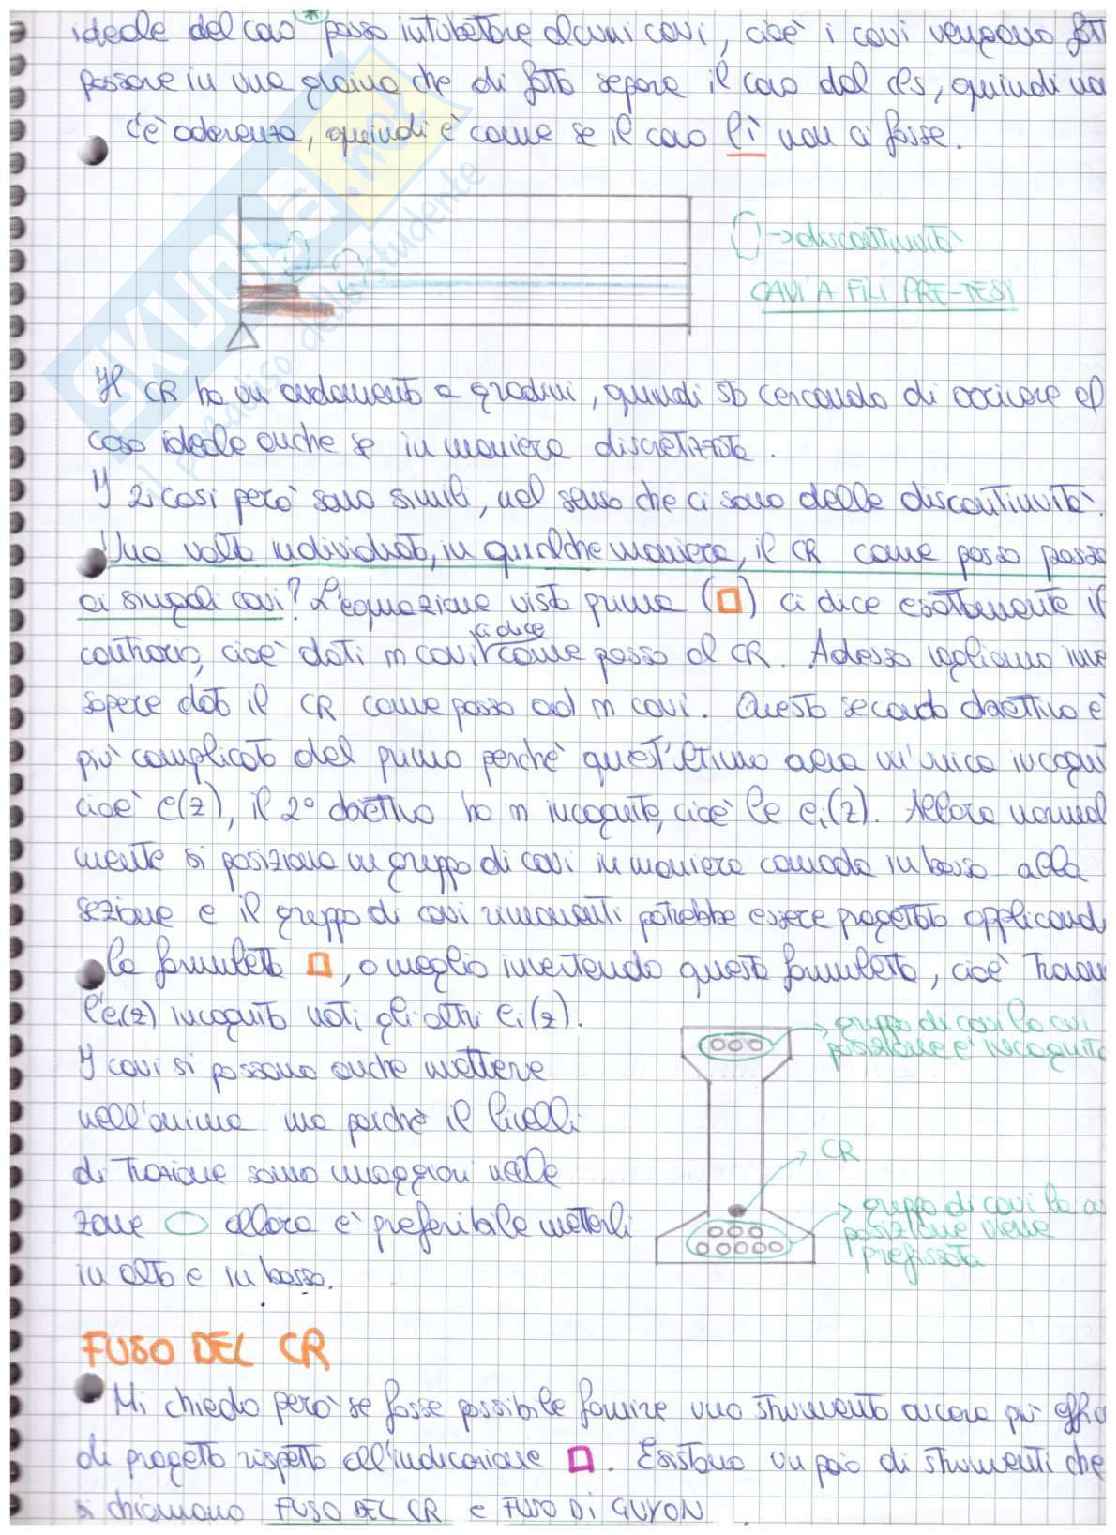 ideale del cavo * posso intubettare alcuni cavi, cioè i cavi vengono fatti
passare in una guaina che di fatto separa il cavo dal cls, quindi non
c'è aderenza, quindi è come se il cavo lì non ci fosse.
→ discontinuità
CAVI A FILI PRE-TESI
Il CR ha un andamento a gradini, quindi sto cercando di arrivare al
caso ideale anche se in maniera discretizzata.
I 2 casi però sono simili, nel senso che ci sono delle discontinuità.
Una volta individuato, in qualche maniera, il CR come posso passare
ai singoli cavi? L'equazione vista prima ( ) ci dice esattamente il
contrario, cioè dati m cavi ci dice come passo al CR. Adesso vogliamo
sapere dato il CR come passo ad m cavi. Questo secondo obiettivo è
più complicato del primo perché quest'ultimo aveva un'unica incognita
cioè e(z), il 2° obiettivo ha m incognite, cioè le ei(z). Allora normal
mente si posiziona un gruppo di cavi in maniera comoda in basso alla
sezione e il gruppo di cavi rimanenti potrebbe essere progettato applicando
la formuletta , o meglio invertendo questa formuletta, cioè trovan
l'ei(z) incognito noti gli altri ei(z).
→ gruppo di cavi la cui
posizione è incognita
I cavi si possono anche mettere
nell'anima ma poiché il livelli
di trazione sono maggiori nelle
CR
zone allora è preferibile metterli
in alto e in basso.
→ gruppo di cavi la cui
posizione viene
prefissata
FUSO DEL CR
Mi chiedo però se fosse possibile fornire uno strumento ancora più effica
di progetto rispetto all'indicazione . Esistono un paio di strumenti che
si chiamano FUSO DEL CR e FUSO DI GUYON
SKUOLA.net
il paradiso dello studente